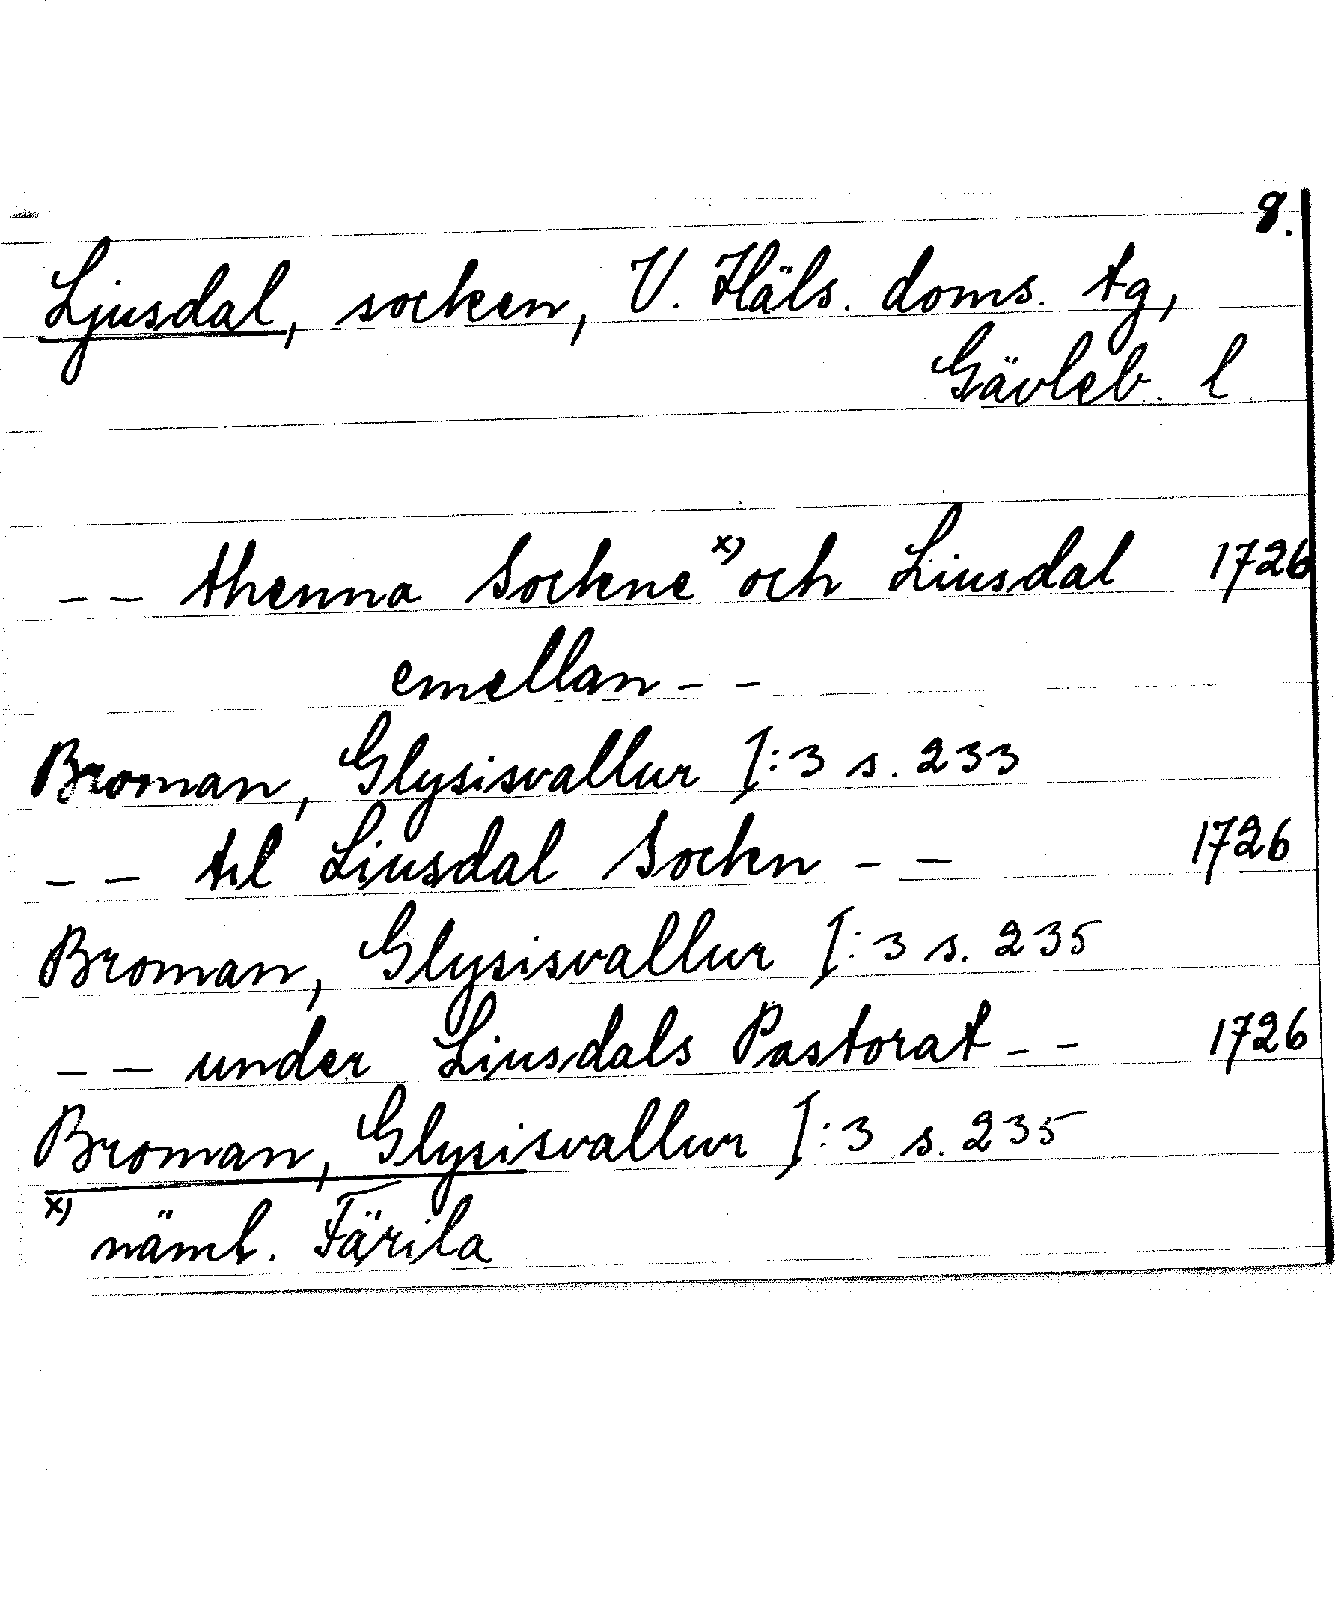 8.
Ljusdal, socken, V. Häls. doms. tg,
Gävleb. l
-- thenna Sockne x) och Liusdal 1726
emellan --
Broman, Glysisvallur I:3 s. 233
-- til Liusdal Sockn -- 1726
Broman, Glysisvallur I:3 s. 235
-- under Liusdals Pastorat -- 1726
Broman, Glysisvallur I:3 s. 235
x) näml. Färila